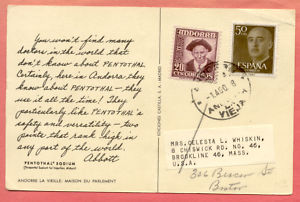 You won't find many
doctors in the world that
don't know about PENTOTHAL.
Certainly, here in Andorra they
know about PENTOTHAL - they
use it all the time! They
particularly like PENTOTHAL's
safety and versatility - two
points that rank high in
any part of the world.
Abbott
PENTOTHAL® SODIUM
(Thiopental Sodium for Injection, Abbott)
ANDORRE LA VIEILLE: MAISON DU PARLEMENT
EDICIONES CASTILLA, S. A. MADRID
ANDORRA
20
CENTIMOS
50
ESPAÑA
VIEJA
MRS. CELESTA L. WHISKIN,
8 CHISWICK RD. NO. 46,
BROOKLINE 46, MASS.
U.S.A.
306 Beacon St
Boston